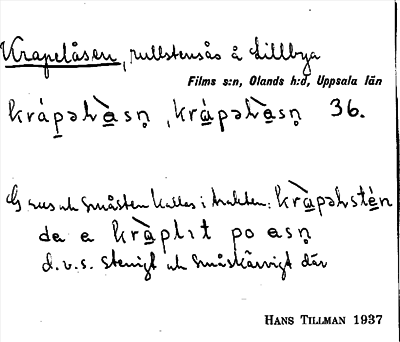 Krapelåsen, rullstensås å Lillbyga
Films s:n, Olands h:d, Uppsala län
krápəlàsn̥, kràpəlàsn̥ 36.
Grus och småsten kallas i trakten: kràpəlstén
de e kràplıt po asn̥
d.v.s. stenigt och småskärvigt där
HANS TILLMAN 1937